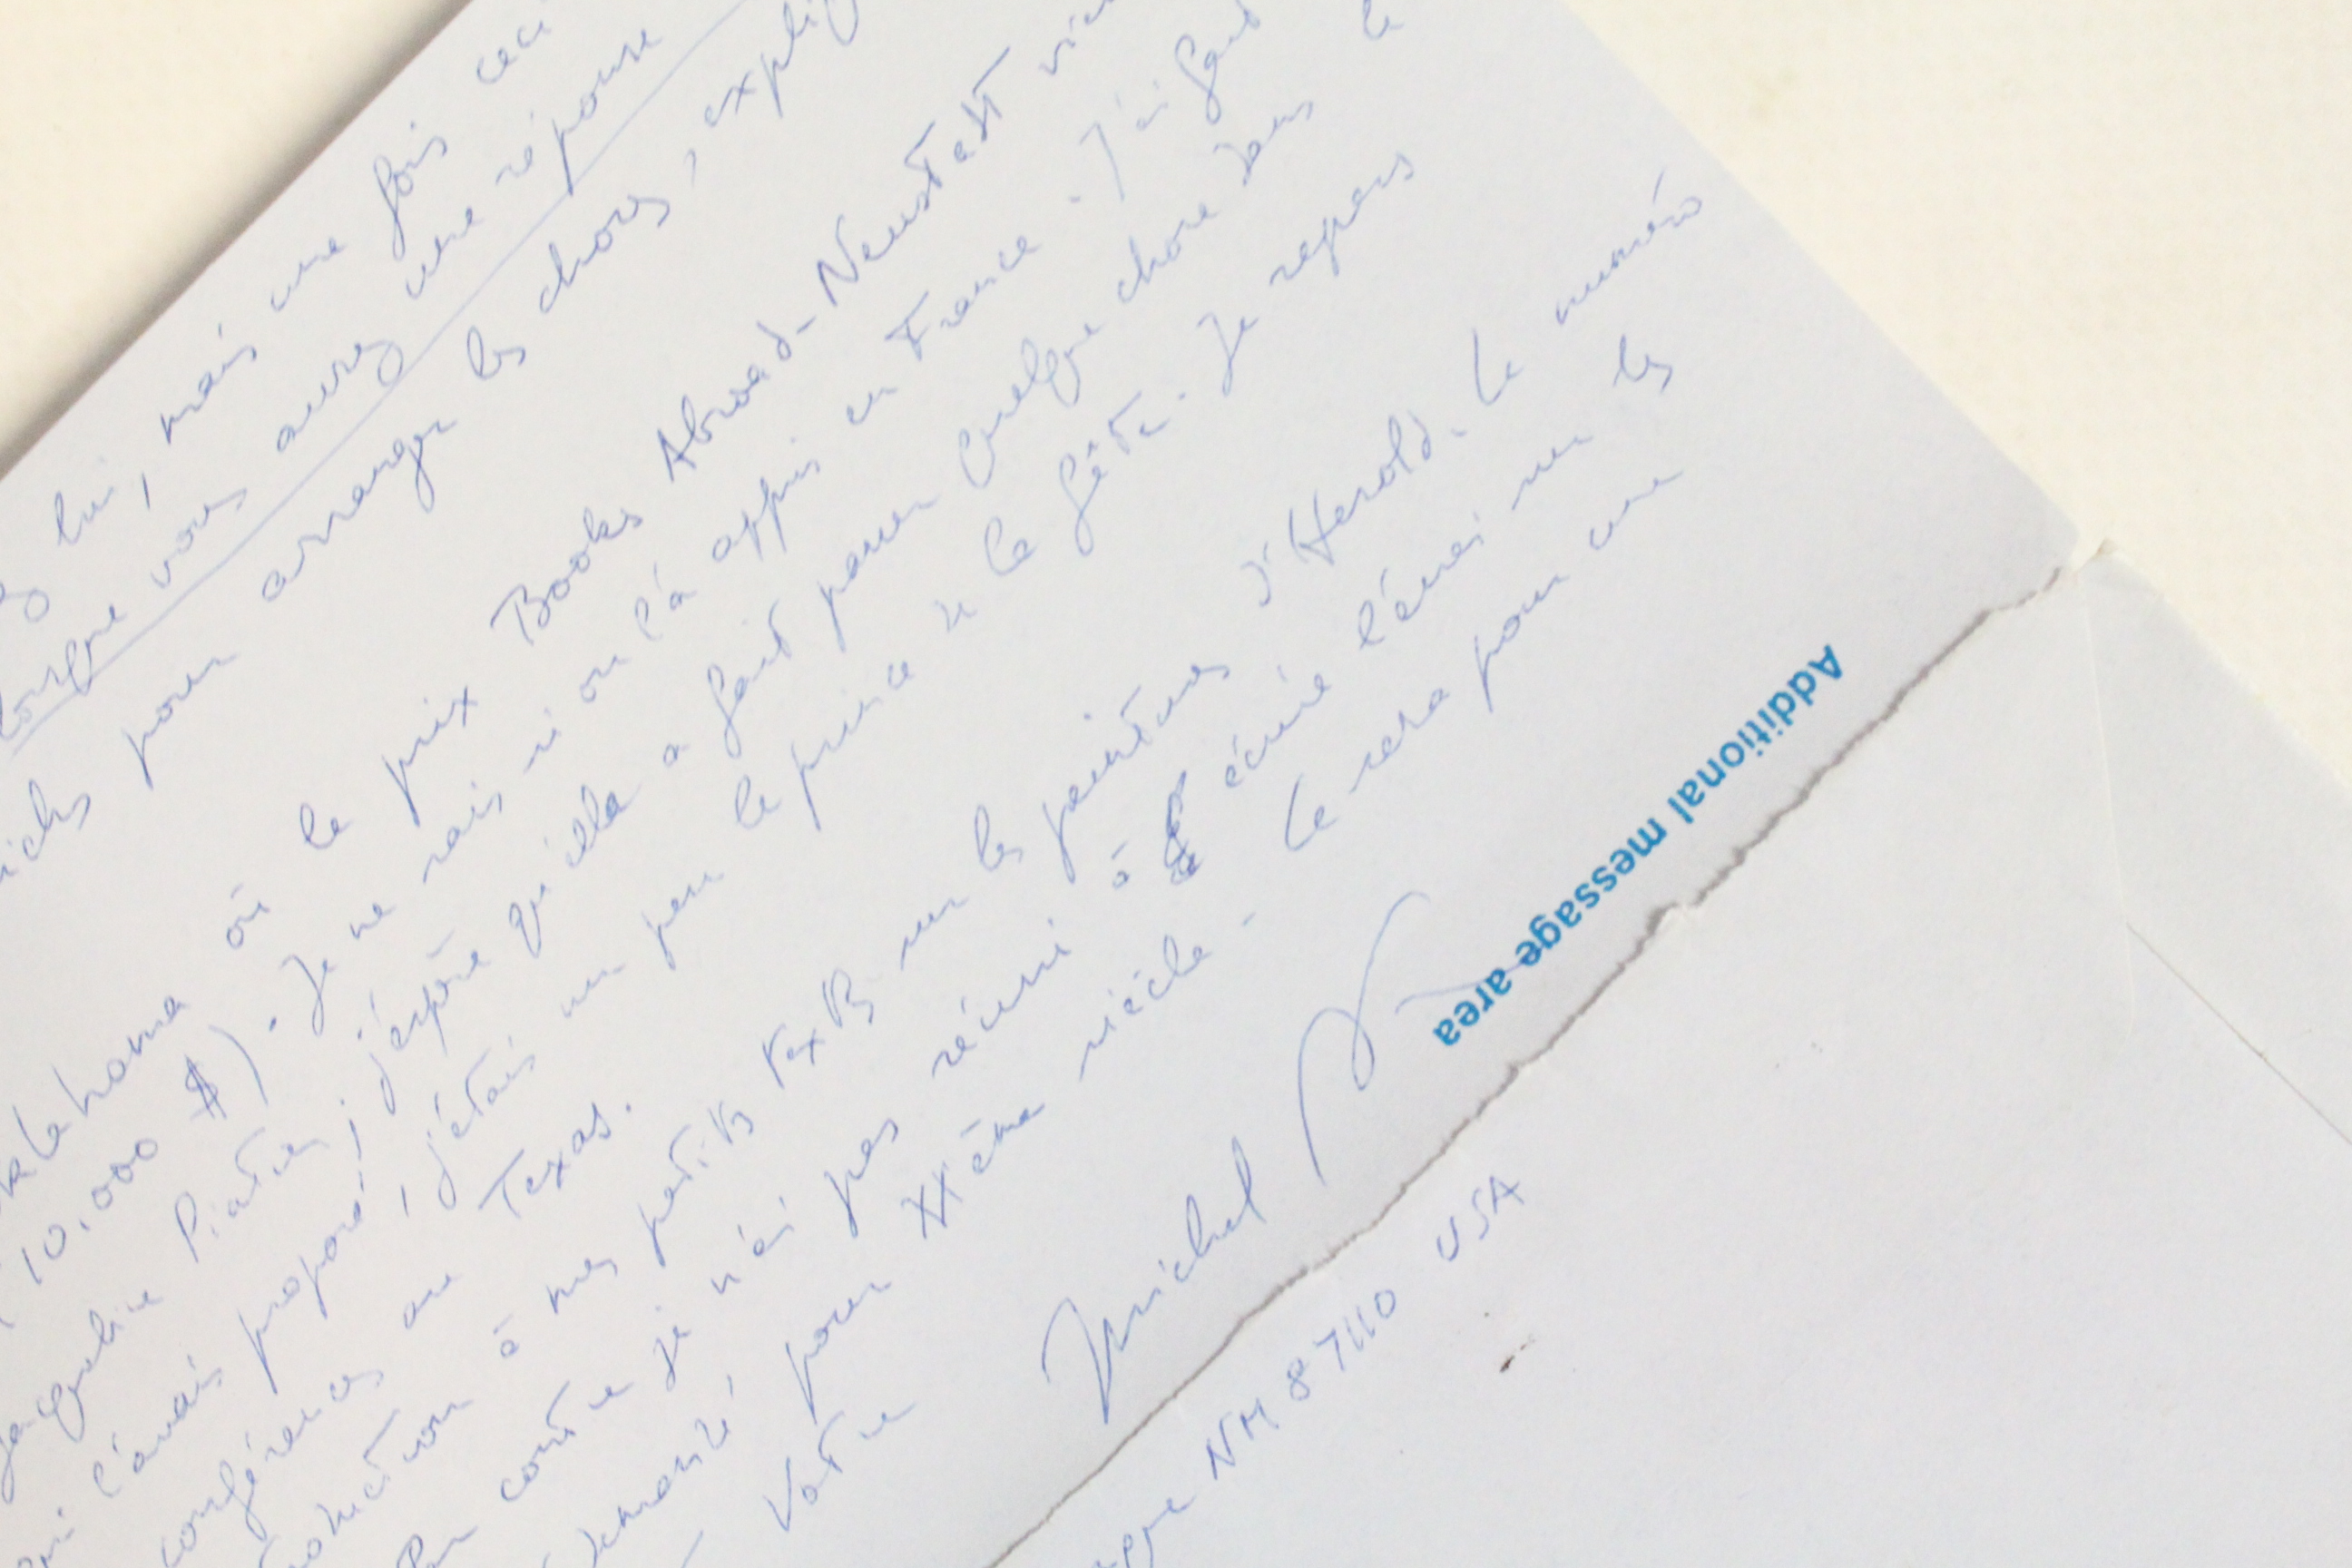 lui, mais une fois ceci
vous aurez une réponse
pour arranger les choses, expliq
Oklahoma où le prix Books Abroad-Neustadt vien
10.000 $). Je ne sais si on l'a appris en France. J'ai fait
Piatier; j'espère qu'elle a fait passer quelque chose dans le
l'avais proposé, j'étais un peu le prince de la fête. Je repars
conférences au Texas.
à mes petits textes sur les peintures d'Herold. Le numéro
contre je n'ai pas réussi à écrire l'essai sur les
demandé pour XXème siècle - Ce sera pour une
Votre
Michel
Additional message area
NM 87110 USA